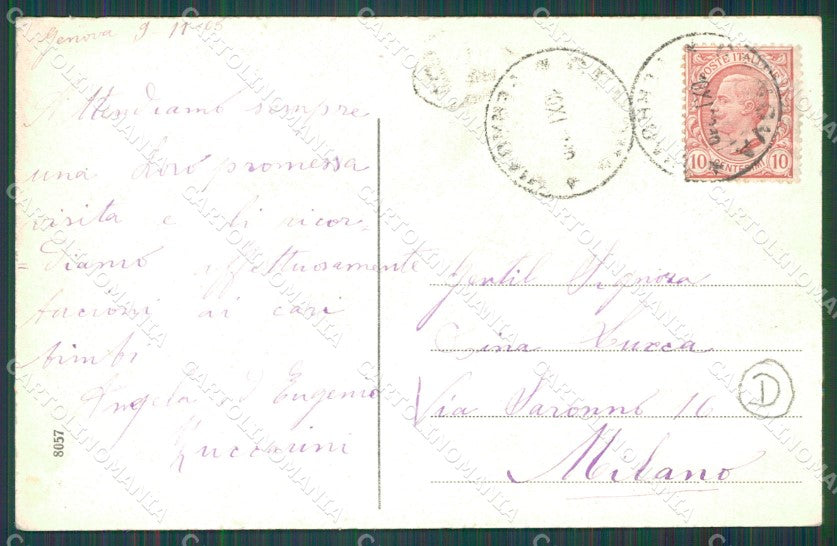 Genova 9-11-05
Attendiamo sempre
una Loro promessa
visita e li ricor-
-diamo affettuosamente
bacioni ai cari
bimbi
Angela ed Eugenio
Zuccarini
8057
POSTE ITALIANE
10 CENTESIMI 10
Gentil Signora
Gina
Via Saronno 16
Milano
D
CARTOLINOMANIA